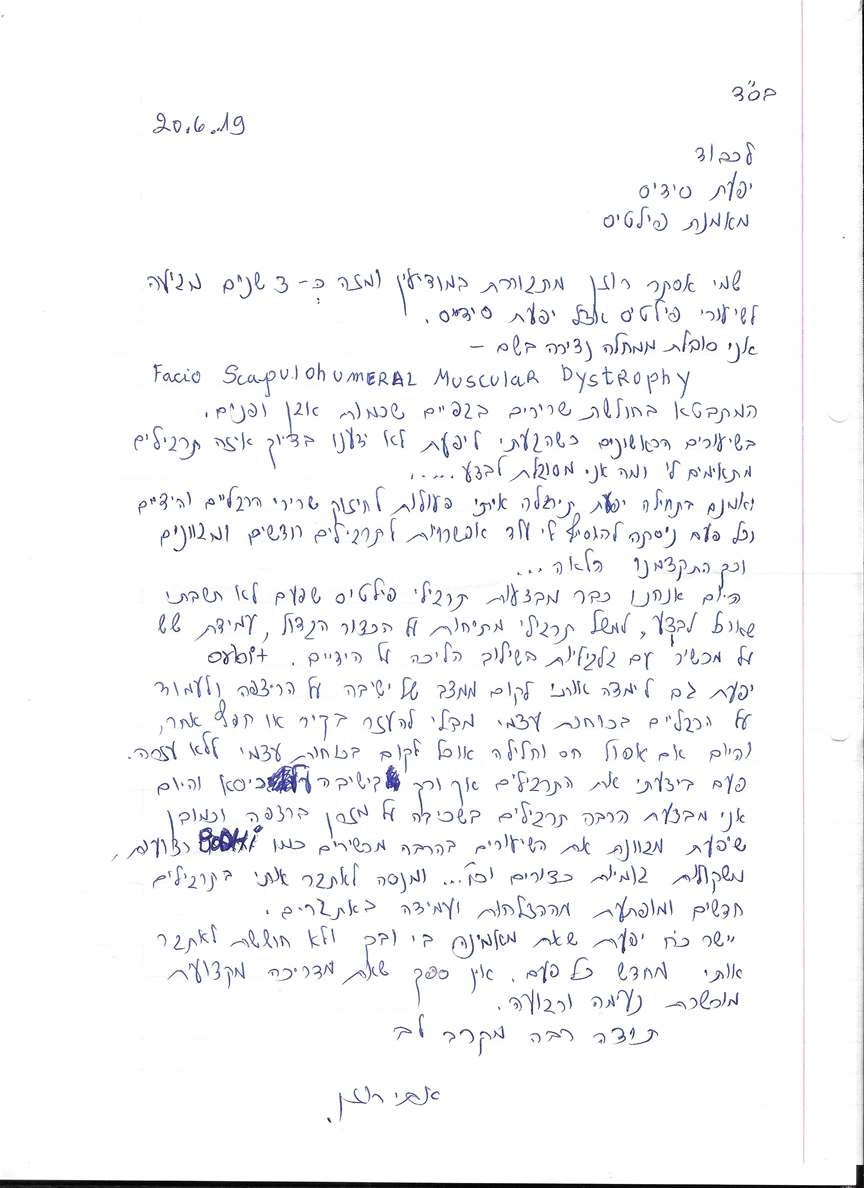 בס"ד
20.6.19
לכבוד
יפעת סידיס
מאמנת פילטיס
שמי אסתר רוזן מתגוררת במודיעין ומזה כ- 3 שנים מגיעה
לשיעורי פילטיס אצל יפעת סידיס.
אני סובלת ממחלה נדירה בשם –
Facio ScapuloHUMERAL MusculaR DystRophy
המתבטא בחולשת שרירים בגפיים שכמות אגן ופנים.
בשיעורים הראשונים כשהגעתי ליפעת לא ידענו בדיוק איזה תרגילים
מתאימים לי ומה אני מסוגלת לבצע.....
ואמנם בתחילה יפעת תירגלה איתי פעולות לחיזוק שרירי הרגליים והידיים
וכל פעם ניסתה להוסיף לי עוד אפשרויות לתרגילים חדשים ומגוונים
וכך התקדמנו הלאה...
היום אנחנו כבר מבצעות תרגילי פילטיס שפעם לא חשבתי
שאוכל לבצע, למשל תרגילי מתיחות על הכדור הגדול, עמידת שש
על מכשיר עם גלגיליות בשילוב הליכה על הידיים. orbit
יפעת גם לימדה אותי לקום ממצב של ישיבה על הריצפה ולעמוד
על הרגליים בכוחות עצמי מבלי להעזר בקיר או חפץ אחר,
והיום אם אפול חס וחלילה אוכל לקום בכוחות עצמי ללא עזרה.
פעם ביצעתי את התרגילים אך ורק בישיבה כיסא והיום
אני מבצעת הרבה תרגילים בשכיבה על מזרן ברצפה וכמובן
שיפעת מגוונת את השיעורים בהרבה מכשירים כמו BODHi רצועות,
משקולות גומיות כדורים וכו'... ומנסה לאתגר אותי בתרגילים
חדשים ומופתעת מההצלחות ועמידה באתגרים.
יישר כח יפעת שאת מאמינה בי ובך ולא חוששת לאתגר
אותי מחדש כל פעם. אין ספק שאת מדריכה מקצועית
מוכשרת נעימה ורגועה.
תודה רבה מקרב לב
אסתי רוזן.